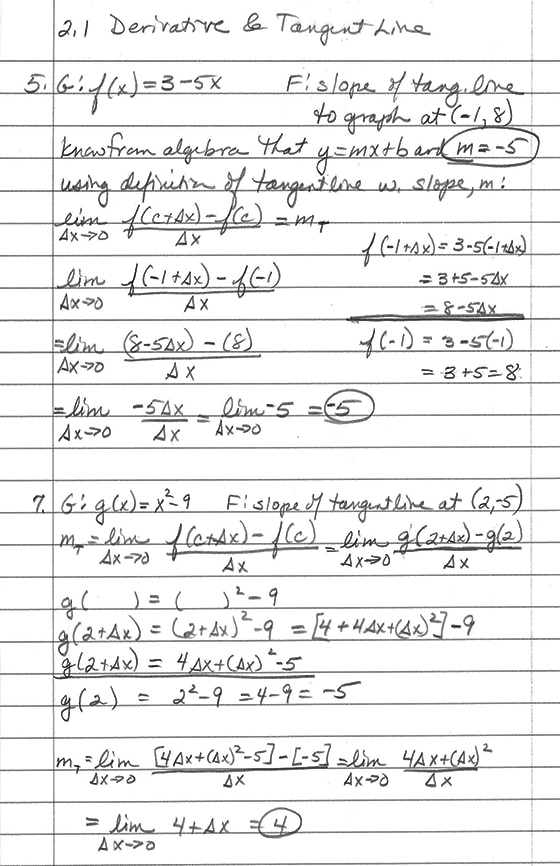 2.1 Derivative & Tangent Line
5. G: f(x) = 3-5x   F: slope of tang. line
to graph at (-1, 8)
know from algebra that y=mx+b and m=-5
using definition of tangent line w. slope, m:
lim Δx→0 (f(c+Δx) - f(c))/Δx = m_T
f(-1+Δx) = 3-5(-1+Δx)
= 3+5-5Δx
= 8-5Δx
lim Δx→0 (f(-1+Δx) - f(-1))/Δx
f(-1) = 3-5(-1)
= 3+5 = 8
= lim Δx→0 ((8-5Δx) - (8))/Δx
= lim Δx→0 -5Δx/Δx = lim Δx→0 -5 = -5
7. G: g(x) = x²-9   F: slope of tangent line at (2,-5)
m_T = lim Δx→0 (f(c+Δx) - f(c))/Δx = lim Δx→0 (g(2+Δx) - g(2))/Δx
g(  ) = (  )² - 9
g(2+Δx) = (2+Δx)² - 9 = [4+4Δx+(Δx)²] - 9
g(2+Δx) = 4Δx+(Δx)² - 5
g(2) = 2²-9 = 4-9 = -5
m_T = lim Δx→0 ([4Δx+(Δx)²-5] - [-5])/Δx = lim Δx→0 (4Δx+(Δx)²)/Δx
= lim Δx→0 4+Δx = 4